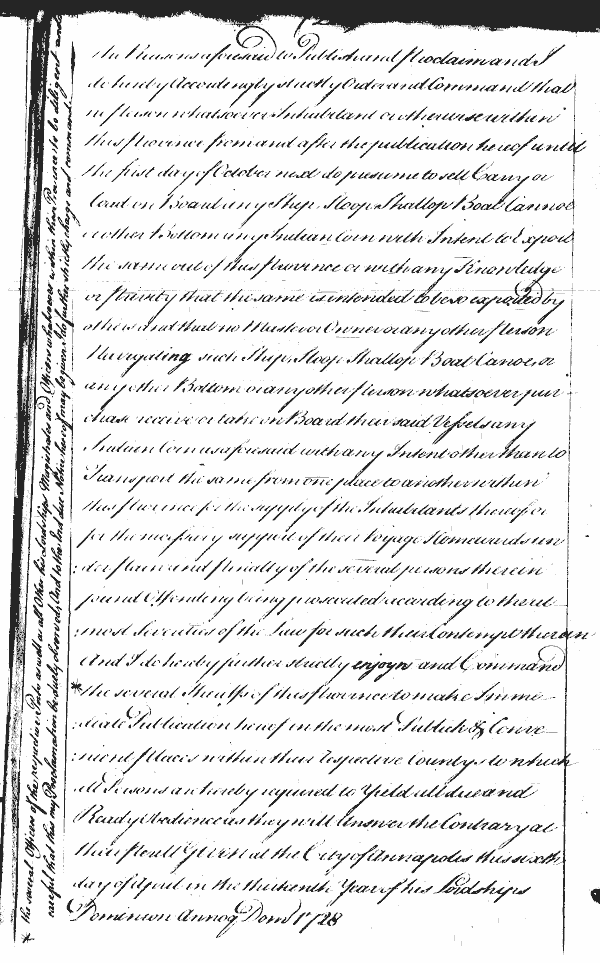 the Reasons aforesaid to Publish and proclaim and I
do hereby Accordingly strictly Order and Command that
no person whatsoever Inhabitant or otherwise within
this province from and after the publication hereof until
the first day of October next do presume to sell Carry or
load on Board any Ship, Sloop Shallop Boat Cannoe
or other Bottom any Indian Corn with Intent to Export
the same out of this Province or with any Knowledge
or privity that the same is intended to be so exported by
others and that no Master or Owner or any other person
Navigating such Ship, Sloop Shallop Boat Canoe, or
any other Bottom or any other person whatsoever pur
chase receive or take on Board their said Vessels any
Indian Corn as aforesaid with any Intent other than to
Transport the same from one place to another within
this province for the supply of the Inhabitants thereof or
for the necessary support of their Voyage Homewards un
der pain and penalty of the several persons therein
found Offending being prosecuted according to the ut
most Severities of the Law for such their Contempt therein
And I do hereby further strictly enjoyn and Command
* the several Sheriffs of this province to make Imme
diate Publication hereof in the most Publick & Conve
nient places within their respective Countys to which
all Persons are hereby required to Yield all due and
Ready Obedience as they will Answer the Contrary at
their perill Given at the City of Annapolis this sixth
day of April in the thirteenth Year of his Lordships
Dominion Annoq Dom 1728
* the several Officers of the respective Ports as well as all Other his Lordships Magistrates and Officers whatsoever within this Province to be diligent and
careful that this my Proclamation be duely observed, And to the End due Notice hereof may be given I do further strictly charge and command